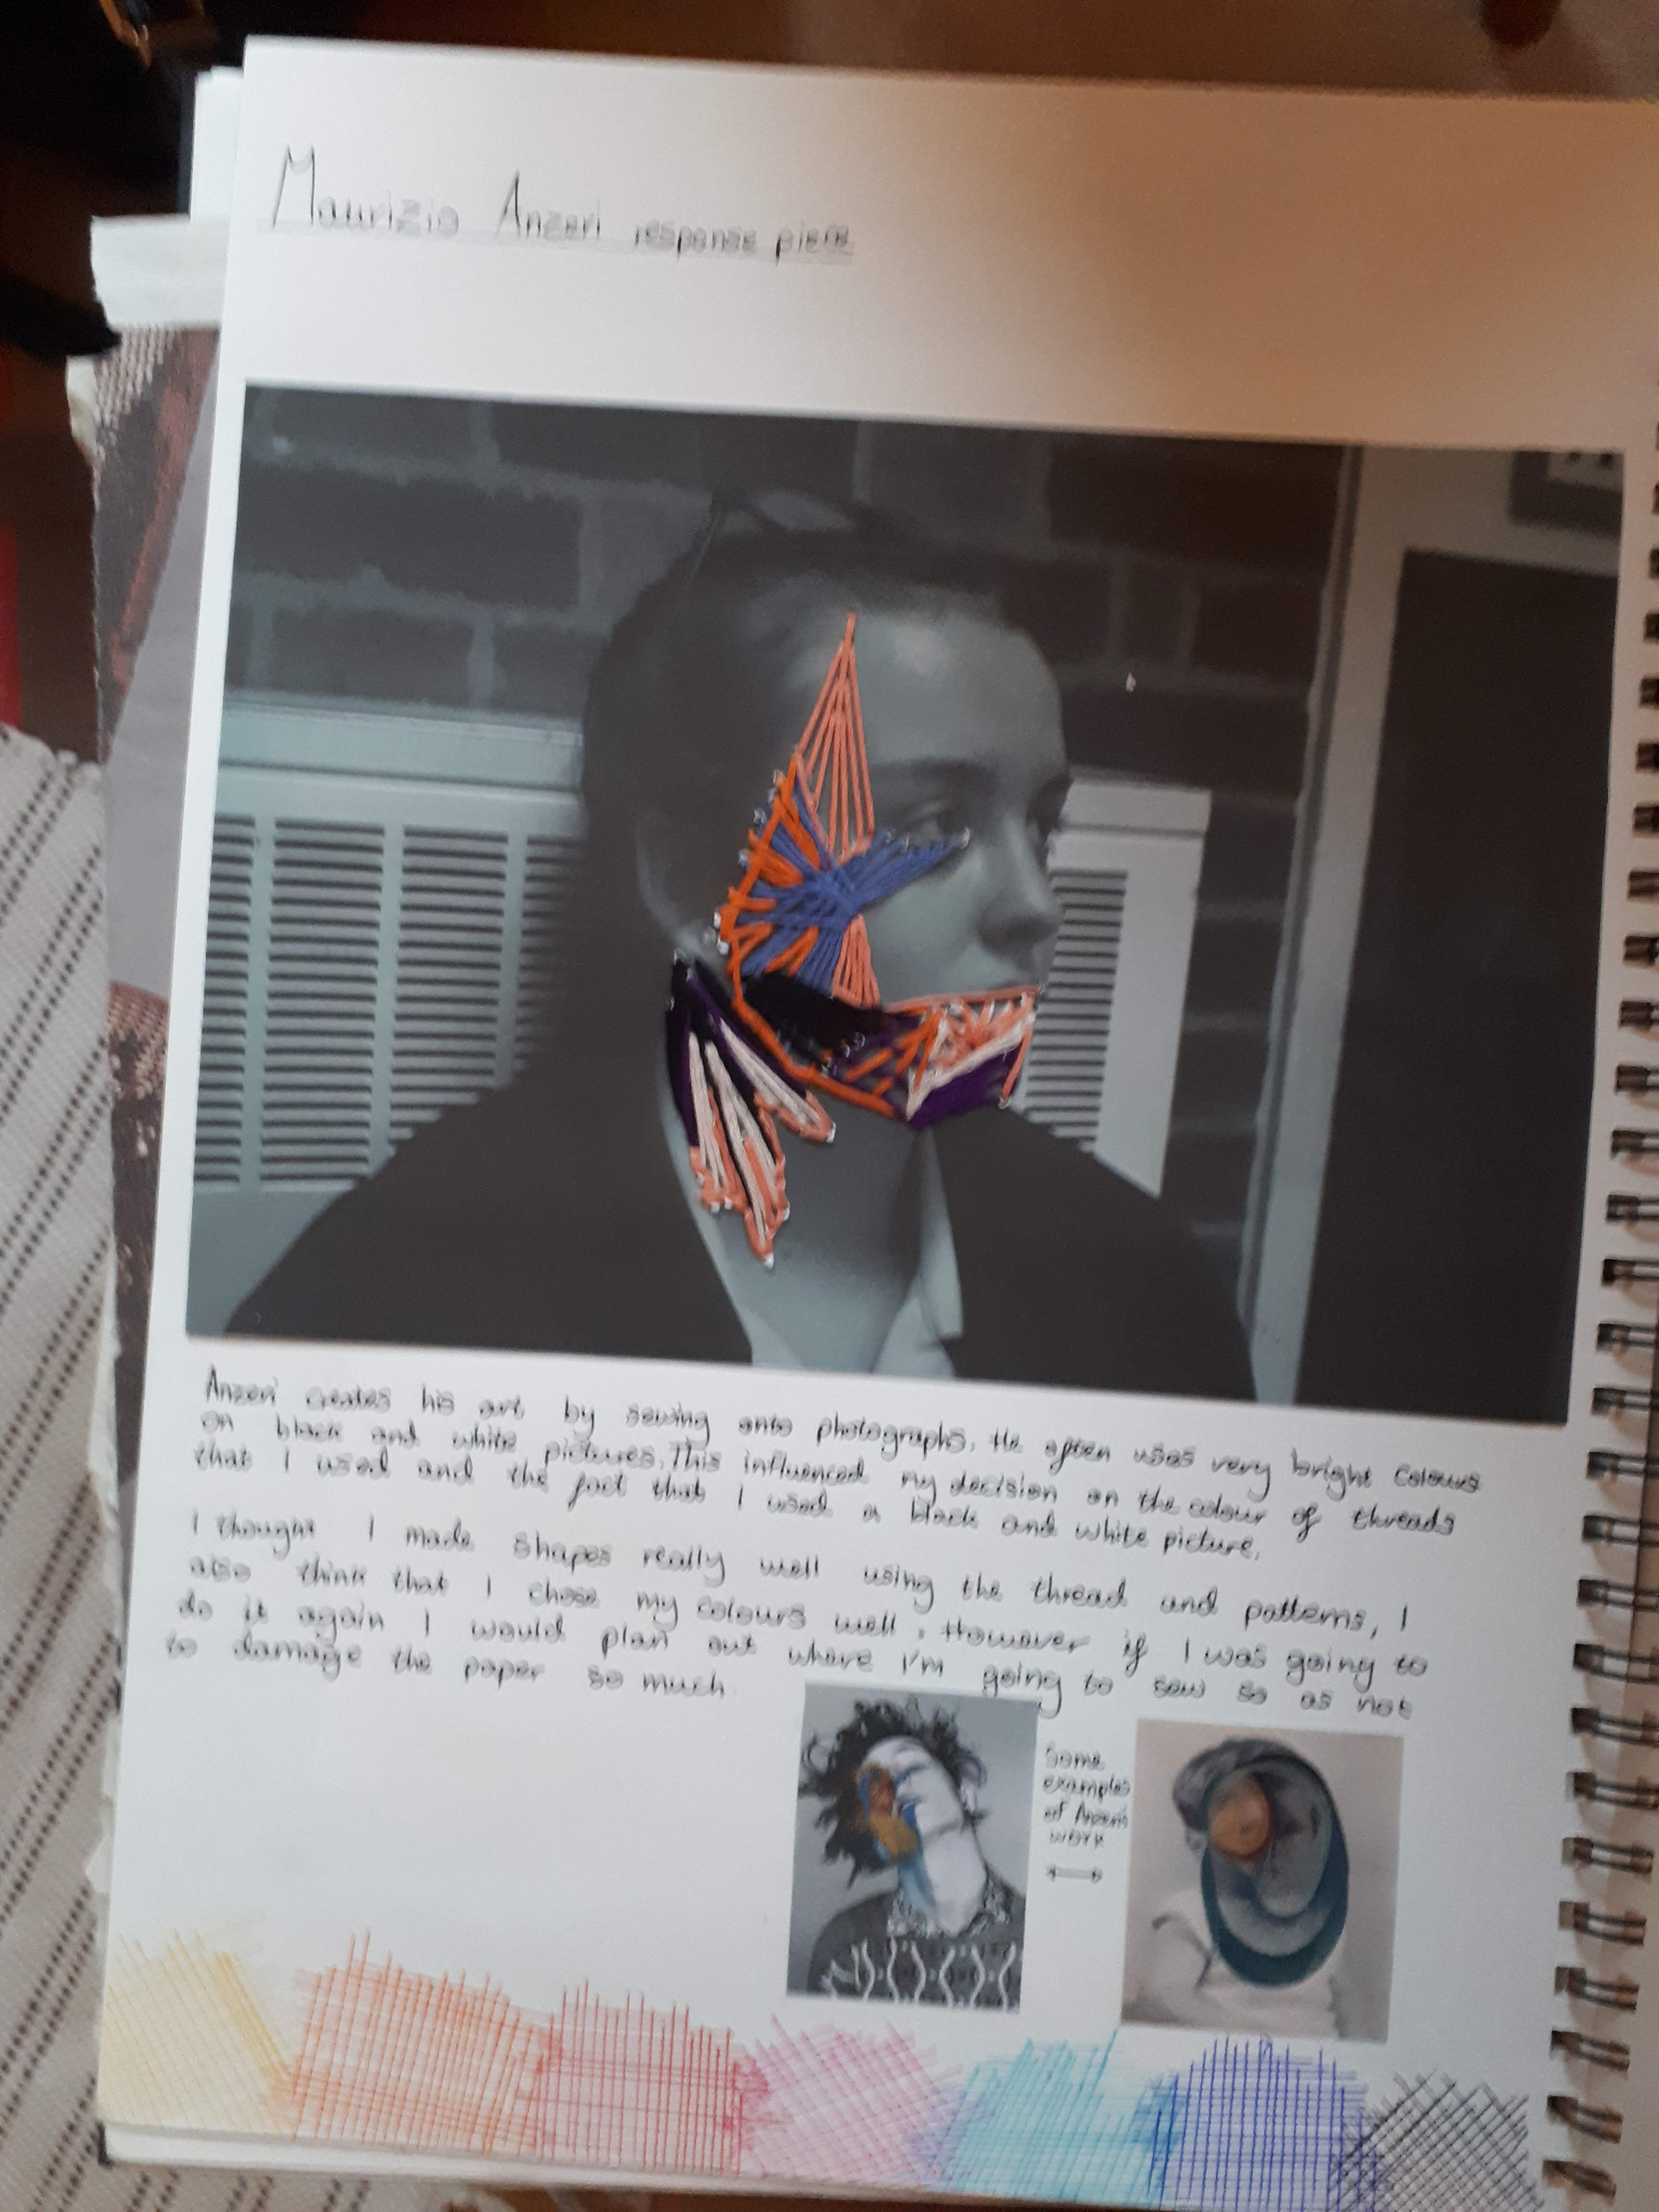 Maurizio Anzeri response piece
Anzeri creates his art by sewing onto photographs. He often uses very bright colours
on black and white pictures. This influenced my decision on the colour of threads
that I used and the fact that I used a black and white picture.
I thought I made shapes really well using the thread and patterns, I
also think that I chose my colours well. However if I was going to
do it again I would plan out where I'm going to sew so as not
to damage the paper so much
Some
examples
of Anzeri's
work